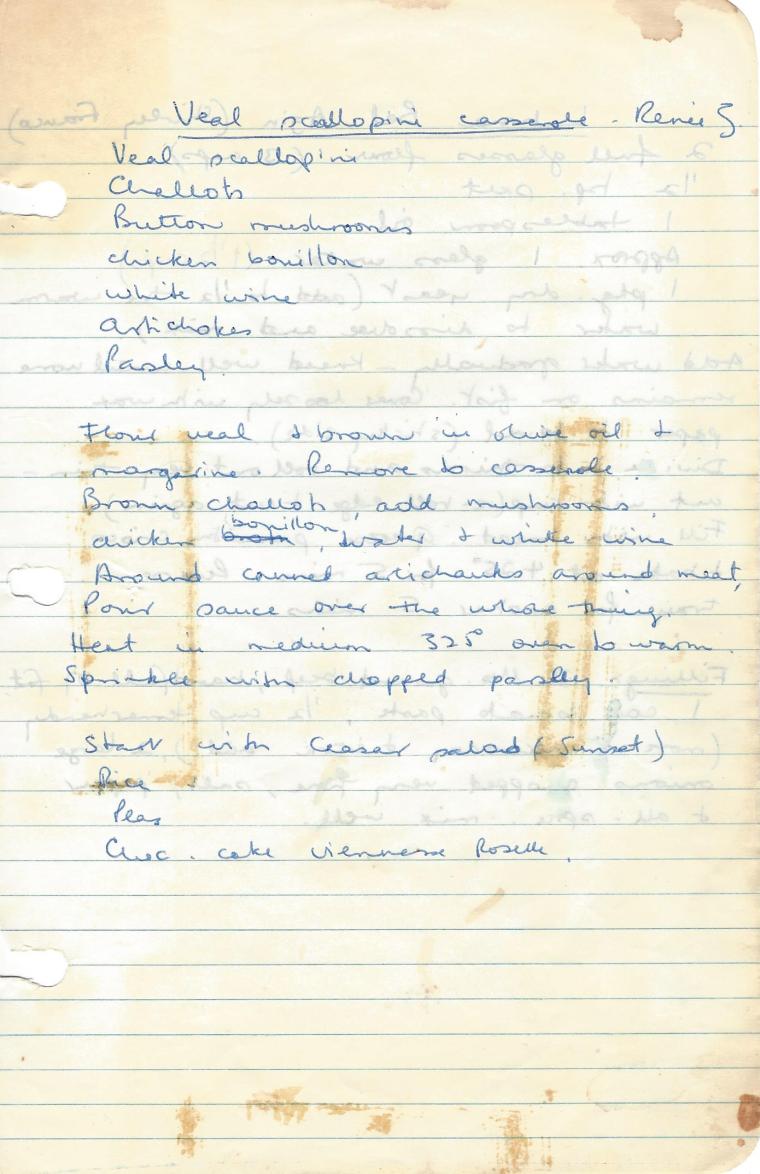 Veal scallopini casserole - Renée Z
Veal scallopini
Challots
Button mushrooms
chicken bouillon
white wine
Artichokes
Parsley
Flour veal & brown in olive oil &
margerine. Remove to casserole.
Brown challots, add mushrooms,
chicken broth bouillon, water & white wine
Around canned artichauks around meat,
Pour sauce over the whole thing.
Heat in medium 325° oven to warm.
Sprinkle with chopped parsley.
Start with Ceasar salad (Sunset)
Rice
Peas
Choc. cake viennese Roselle.